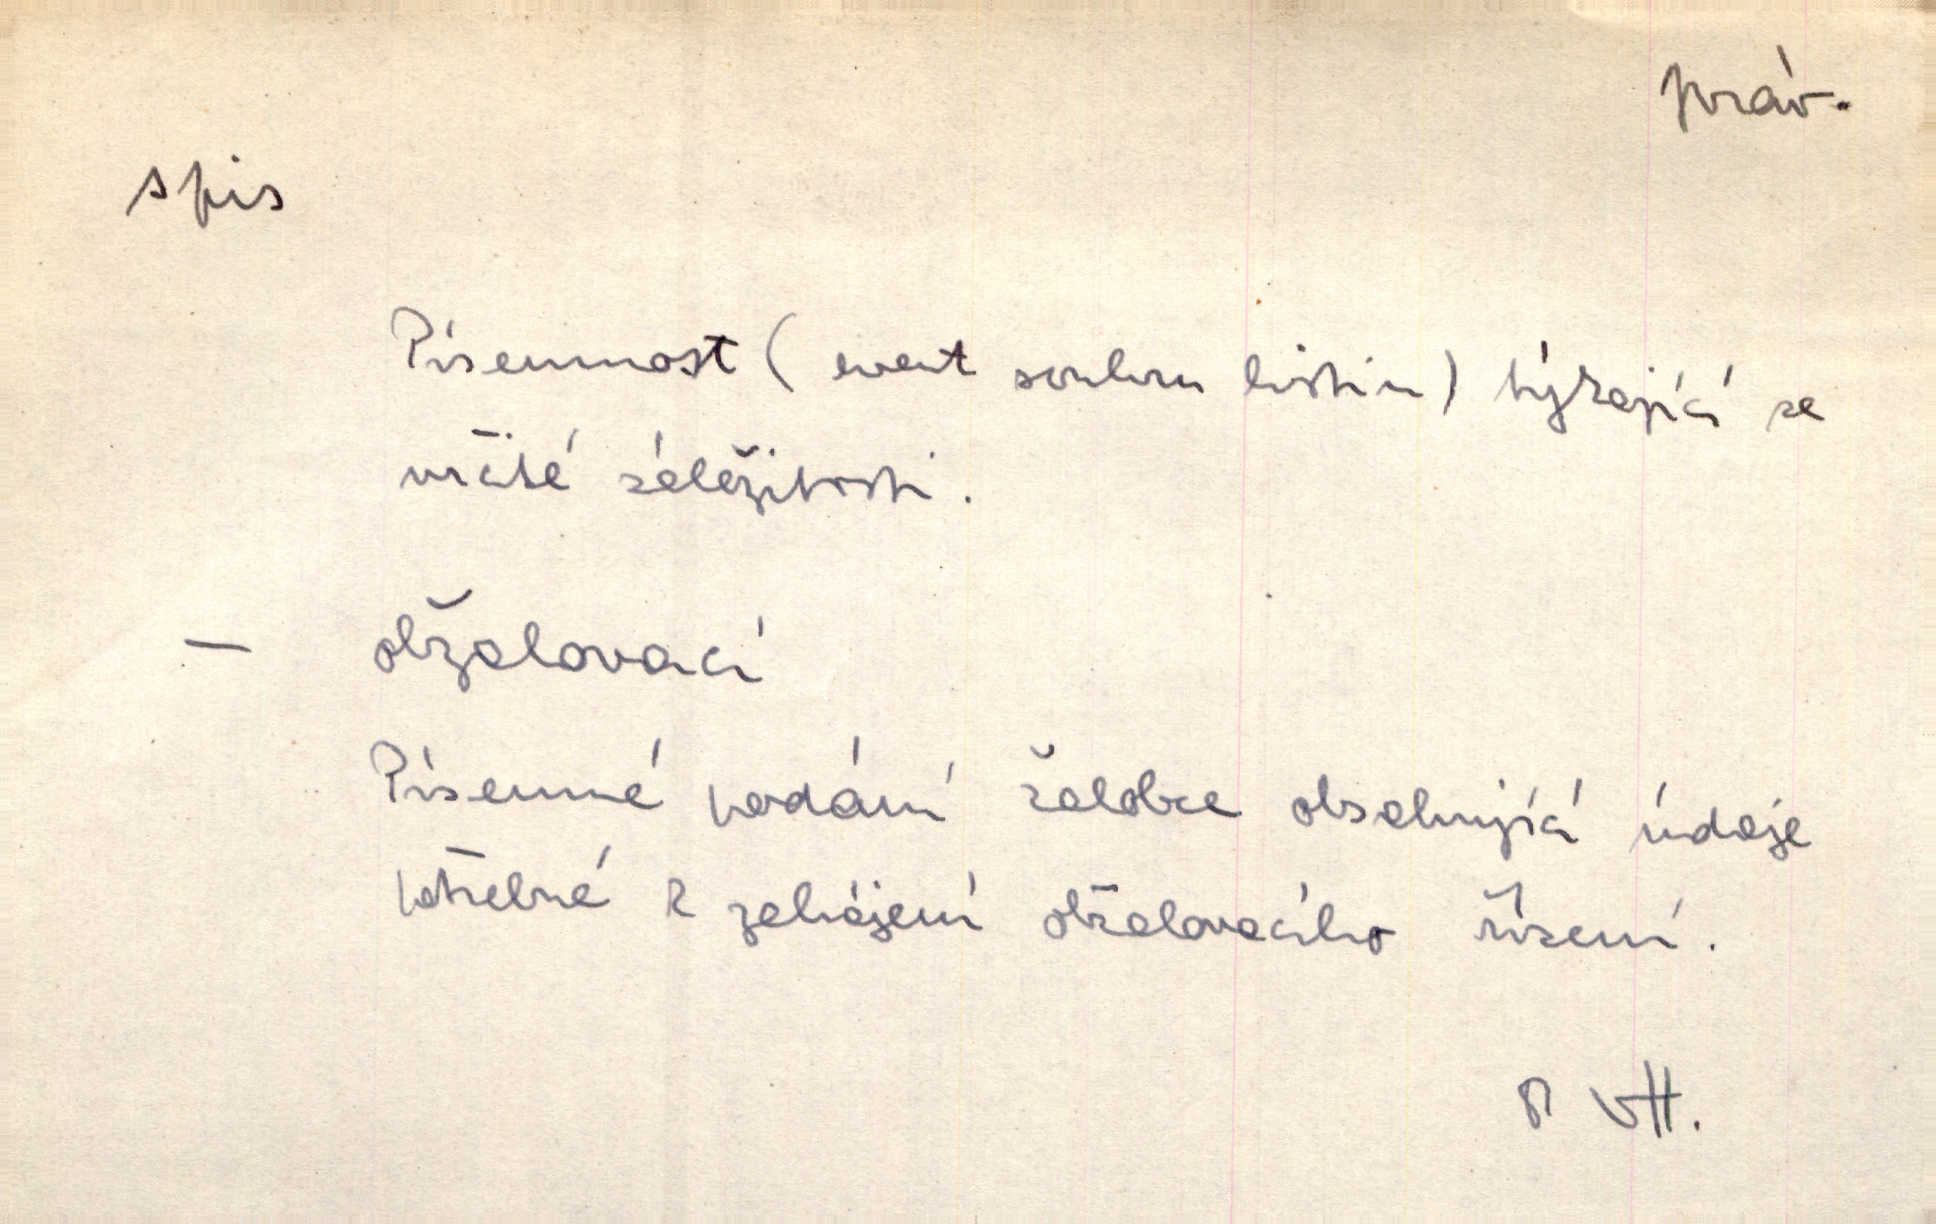 práv.
spis
Písemnost (event soubor listin) týkající se
určité záležitosti.
— obžalovací
Písemné podání žalobce obsahující údaje
potřebné k zahájení obžalovacího řízení.
VH.